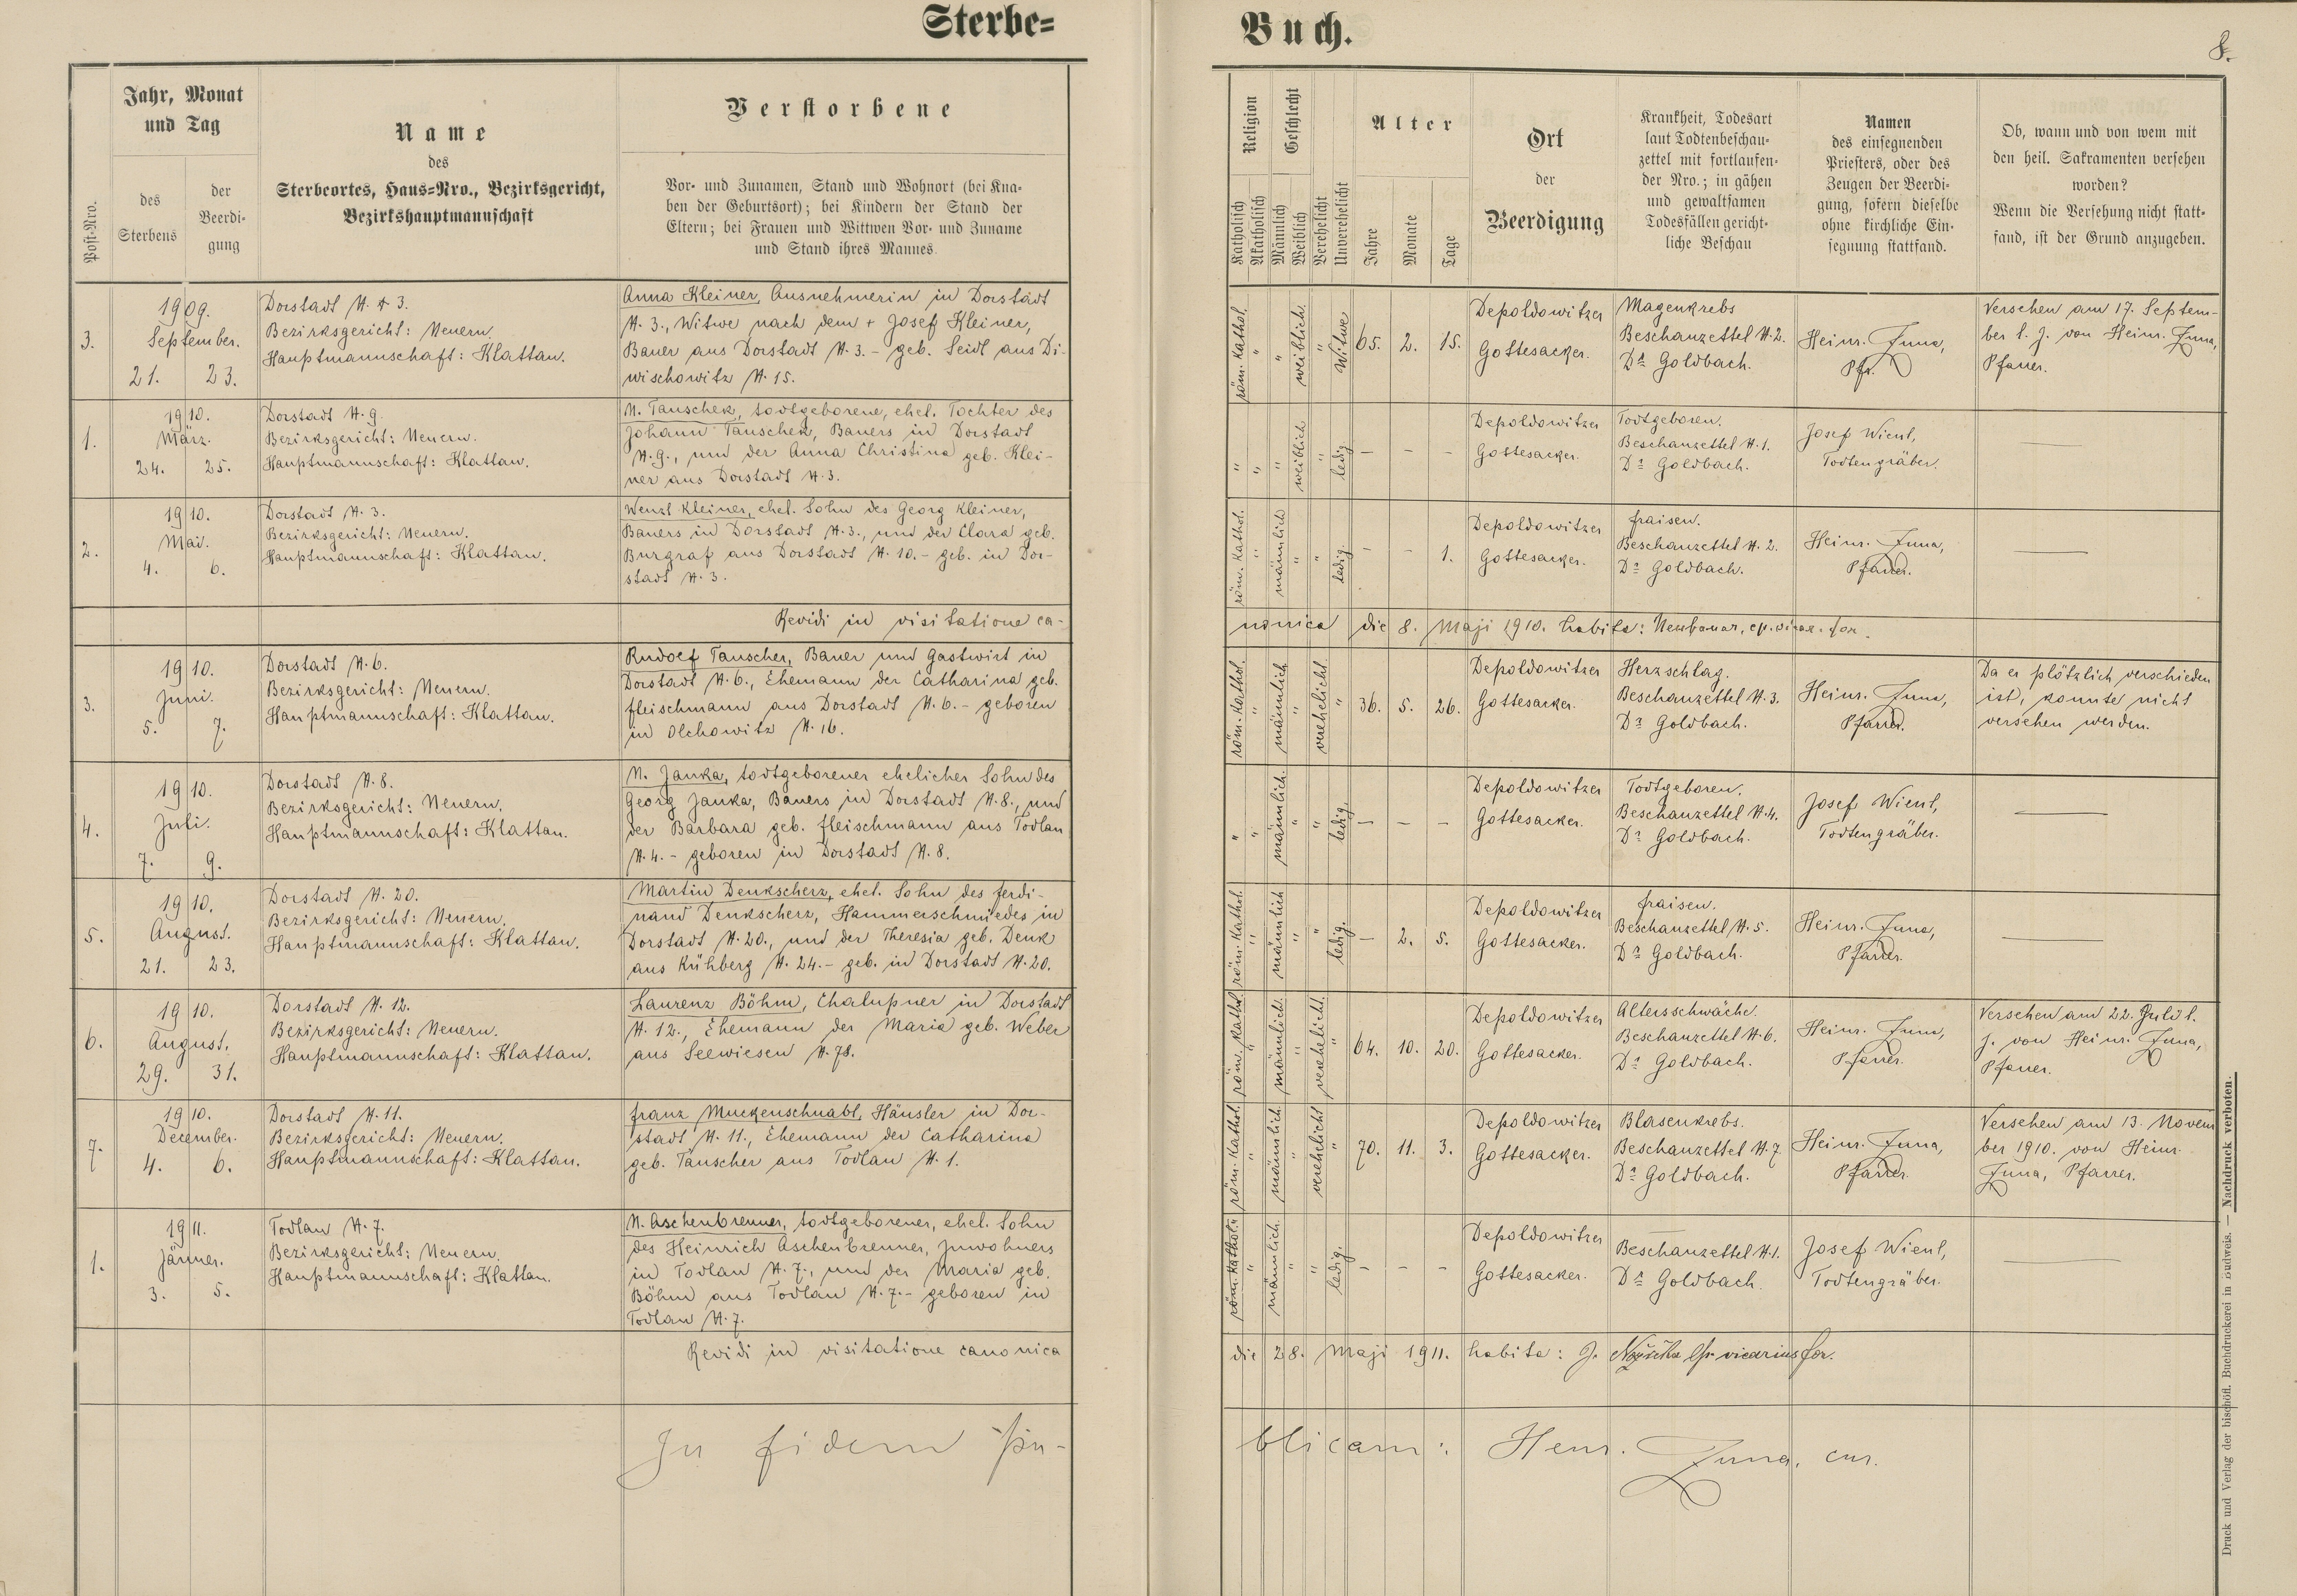 Sterbe=
Buch.
8.
Post-Nro.
Jahr, Monat
und Tag
des
Sterbens
der
Beerdi-
gung
Name
des
Sterbeortes, Haus=Nro., Bezirksgericht,
Bezirkshauptmannschaft
Verstorbene
Vor- und Zunamen, Stand und Wohnort (bei Kna-
ben der Geburtsort); bei Kindern der Stand der
Eltern; bei Frauen und Wittwen Vor- und Zuname
und Stand ihres Mannes.
Religion
Katholisch
Akatholisch
Geschlecht
Männlich
Weiblich
Verehelicht
Unverehelicht
Alter
Jahre
Monate
Tage
Ort
der
Beerdigung
Krankheit, Todesart
laut Todtenbeschau-
zettel mit fortlaufen-
der Nro.; in gähen
und gewaltsamen
Todesfällen gericht-
liche Beschau
Namen
des einsegnenden
Priesters, oder des
Zeugen der Beerdi-
gung, sofern dieselbe
ohne kirchliche Ein-
segnung stattfand.
Ob, wann und von wem mit
den heil. Sakramenten versehen
worden?
Wenn die Versehung nicht statt-
fand, ist der Grund anzugeben.
3.
1909.
September.
21. 23.
Dorstadt N. 3.
Bezirksgericht: Neuern.
Hauptmannschaft: Klattau.
Anna Kleiner, Ausnehmerin in Dorstadt
N. 3., Witwe nach dem + Josef Kleiner,
Bauer aus Dorstadt N. 3. – geb. Seidl aus Di-
wischowitz N. 15.
röm. kathol. " " weiblich. " Witwe 65. 2. 15.
Depoldowitzer
Gottesacker.
Magenkrebs
Beschauzettel N. 2.
Dr Goldbach.
Heinr. Juna,
Pfr.
Versehen am 17. Septem-
ber l. J. von Heinr. Juna,
Pfarrer.
1.
1910.
März.
24. 25.
Dorstadt N. 9.
Bezirksgericht: Neuern.
Hauptmannschaft: Klattau.
N. Tauschek, todtgeborene, ehel. Tochter des
Johann Tauschek, Bauers in Dorstadt
N. 9., und der Anna Christina geb. Klei-
ner aus Dorstadt N. 3.
" " " weiblich " ledig – – –
Depoldowitzer
Gottesacker.
Todtgeboren.
Beschauzettel N. 1.
Dr Goldbach.
Josef Wienl,
Todtengräber.
—
2.
1910.
Mai.
4. 6.
Dorstadt N. 3.
Bezirksgericht: Neuern.
Hauptmannschaft: Klattau.
Wenzl Kleiner, ehel. Sohn des Georg Kleiner,
Bauers in Dorstadt N. 3., und der Clara geb.
Burgraf aus Dorstadt N. 10. – geb. in Dor-
stadt N. 3.
röm. kathol. " männlich " " ledig. – – 1.
Depoldowitzer
Gottesacker.
Fraisen.
Beschauzettel N. 2.
Dr Goldbach.
Heinr. Juna,
Pfarrer.
—
Revidi in visitatione ca-
nonica die 8. Maji 1910. habita:
3.
1910.
Juni.
5. 7.
Dorstadt N. 6.
Bezirksgericht: Neuern.
Hauptmannschaft: Klattau.
Rudolf Tauscher, Bauer und Gastwirt in
Dorstadt N. 6., Ehemann der Catharina geb.
Fleischmann aus Dorstadt N. 6. – geboren
in Olchowitz N. 16.
röm. kathol. " männlich " verehelicht. " 36. 5. 26.
Depoldowitzer
Gottesacker.
Herzschlag.
Beschauzettel N. 3.
Dr Goldbach.
Heinr. Juna,
Pfarrer.
Da er plötzlich verschieden
ist, konnte nicht
versehen werden.
4.
1910.
Juli.
7. 9.
Dorstadt N. 8.
Bezirksgericht: Neuern.
Hauptmannschaft: Klattau.
N. Janka, todtgeborener ehelicher Sohn des
Georg Janka, Bauers in Dorstadt N. 8., und
der Barbara geb. Fleischmann aus Todlau
N. 4. – geboren in Dorstadt N. 8.
" " männlich. " " ledig. – – –
Depoldowitzer
Gottesacker.
Todtgeboren.
Beschauzettel N. 4.
Dr Goldbach.
Josef Wienl,
Todtengräber.
—
5.
1910.
August.
21. 23.
Dorstadt N. 20.
Bezirksgericht: Neuern.
Hauptmannschaft: Klattau.
Martin Denkscherz, ehel. Sohn des Ferdi-
nand Denkscherz, Hammerschmiedes in
Dorstadt N. 20., und der Theresia geb. Denk
aus Kühberg N. 24. – geb. in Dorstadt N. 20.
röm. kathol. " männlich " " ledig. – 2. 5.
Depoldowitzer
Gottesacker.
Fraisen.
Beschauzettel N. 5.
Dr Goldbach.
Heinr. Juna,
Pfarrer.
—
6.
1910.
August.
29. 31.
Dorstadt N. 12.
Bezirksgericht: Neuern.
Hauptmannschaft: Klattau.
Laurenz Böhm, Chalupner in Dorstadt
N. 12., Ehemann der Maria geb. Weber
aus Seewiesen N. 78.
röm. kathol. " männlich. " verehelicht. " 64. 10. 20.
Depoldowitzer
Gottesacker.
Altersschwäche.
Beschauzettel N. 6.
Dr Goldbach.
Heinr. Juna,
Pfarrer.
Versehen am 22. Juli l.
J. von Heinr. Juna,
Pfarrer.
7.
1910.
December.
4. 6.
Dorstadt N. 11.
Bezirksgericht: Neuern.
Hauptmannschaft: Klattau.
Franz Muckenschnabl, Häusler in Dor-
stadt N. 11., Ehemann der Catharina
geb. Tauscher aus Todlau N. 1.
röm. kathol. " männlich. " verehelicht " 70. 11. 3.
Depoldowitzer
Gottesacker.
Blasenkrebs.
Beschauzettel N. 7.
Dr Goldbach.
Heinr. Juna,
Pfarrer.
Versehen am 13. Novem
ber 1910. von Heinr.
Juna, Pfarrer.
1.
1911.
Jänner.
3. 5.
Todlau N. 7.
Bezirksgericht: Neuern.
Hauptmannschaft: Klattau.
N. Aschenbrenner, todtgeborener, ehel. Sohn
des Heinrich Aschenbrenner, Inwohners
in Todlau N. 7., und der Maria geb.
Böhm aus Todlau N. 7. – geboren in
Todlau N. 7.
röm. kathol. " männlich. " " ledig. – – –
Depoldowitzer
Gottesacker.
—
Beschauzettel N. 1.
Dr Goldbach.
Josef Wienl,
Todtengräber.
—
Revidi in visitatione canonica
die 28. Maji 1911. habita: J. vicarius for.
In fidem pu-
blicam: Henr. Juna, cur.
Druck und Verlag der bischöfl. Buchdruckerei in Budweis. — Nachdruck verboten.